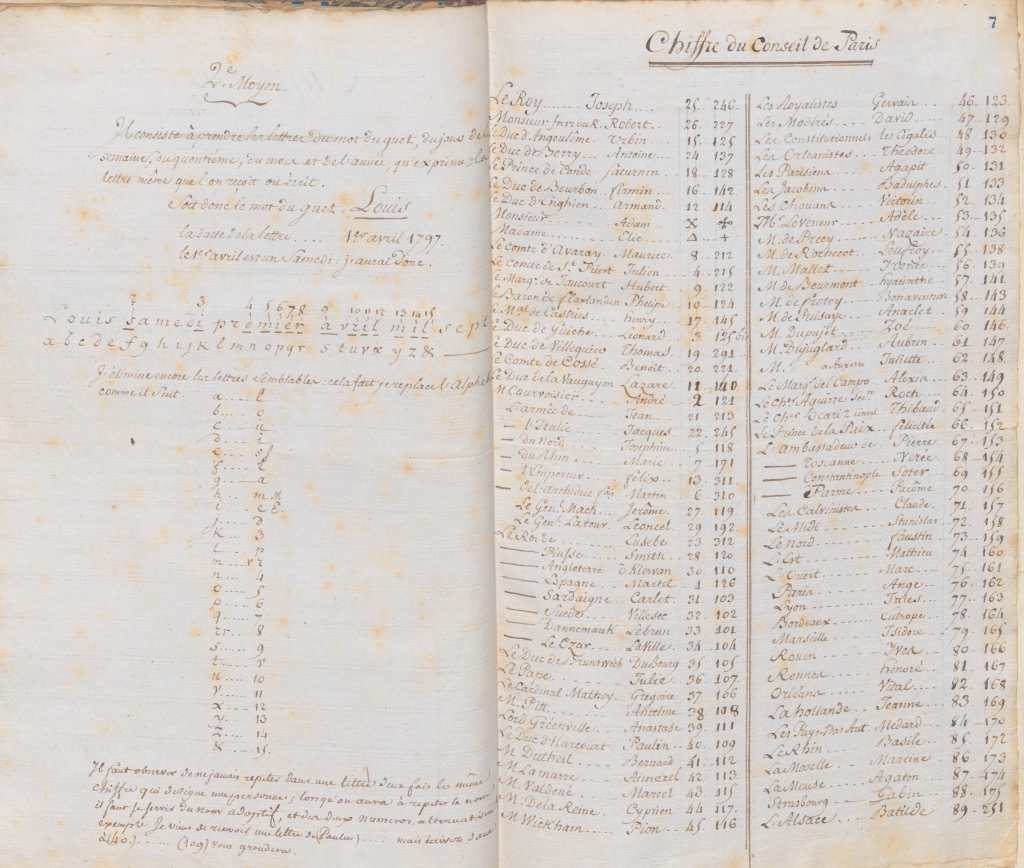 2.e Moyen.
Il consiste à prendre les lettres du mot du guet, du jour de la
semaine, du quantième, du mois et de l'année, qu'exprime la
lettre même que l'on reçoit ou écrit.
Soit donc le mot du guet. Louis
la datte de la lettre.... 1er avril 1797.
le 1er avril est un Samedi: j'aurai donc.
2 3 4 5 6 7 8 9 10 11 12 13 14 15
Louis samedi premier avril mil sept
a b c d e f g h i j k l m n o p q r s t u v x y z &
J'élimine encore les lettres semblables: cela fait je replace l'alphabet
comme il suit.
a.... l
b.... o
c.... u
d.... i
e.... s
f....
g.... a
h.... m
i....
j.... d
k.... 3
l.... p
m....
n.... 4
o.... 5
p.... 6
q.... 7
r.... 8
s.... 9
t....
u.... 10
v.... 11
x.... 12
y.... 13
z.... 14
&.... 15.
Il faut observer de ne jamais repeter dans une lettre deux fois le même
chiffre qui designe une personne; lorsqu'on aura à repeter le nom
il faut se servir du nom adoptif, et des deux numeros, alternativement
exemple. Je viens de recevoir une lettre de (Paulin).... mais écrivez
à (40.)...... (109) vous grondera.
7
Chiffre du Conseil de Paris
Le Roy...... Joseph.... 25. 246
Monsieur Robert.. 26. 227
Le Duc d'Angoulême Urbin.... 15. 125
Le Duc de Berry... Antoine... 24 137
Le Prince de Condé Saturnin.. 18. 128
Le Duc de Bourbon. firmin... 16. 142
Le Duc d'Enghien. Armand. 12 114
Monsieur...... Adam... X +
Madame...... Clie... Δ.. +
Le Comte d'Avaray Maurice.. 8. 212
Le Comte de St. Priest Julien... 4. 215
Le Marq.s de Jaucourt Hubert... 9 122
Le Baron de flaxlanden Phelipe. 10. 124
Le M.al de Castries henry... 17 145
Le Duc de Guiche. Léonard.. 3 125 bis
Le Duc de Villequier Thomas. 19 291
Le Comte de Cossé. Benoit.. 20. 221
Le Duc de la Vauguyon Lazare. 11 140
M. Courvoisier... André.. 2 121
L'armée de.... Jean... 21 213
— l'Italie.... Jacques.. 22. 245
— du Nord... Josephine. 5. 118
— du Rhin... Marie... 7. 171
— l'Empereur.. felix... 13. 311
— Martin.. 6. 310
Le Gen.l Mach.. Jerôme. 27. 119
Le Gen.l Latour. Leoncel. 29 192
Le Roi de..... Eusebe.. 23 312
— Russe... Smith.. 28. 120
— Angleterre Kiervan 30. 110
— Espagne.. Martel. 1 126
— Sardaigne. Carlet. 31. 103
— Suede... Villesec 32. 102
— Dannemark Lebrun 33 101
Le Czar... Laville. 34. 104
Le Duc de Brunswick DuBourg 35. 105
Le Pape..... Julie.. 36. 107.
Le Cardinal Mathey. Gregoire 37 166
M. Pitt...... Anselme 38. 108
Lord Greenville.. Anastase 39. 111
Le Duc d'Harcourt Paulin.. 40. 109
M. Dutheil.... Bernard 41. 112
M. Lamarre... Aimerel 42. 113
M. Valdené.... Marcel 43. 115
M. De la Reine. Cyprien 44. 117.
M. Wickham... Pion.. 45. 116
Les Royalistes Gervais... 46. 123
Les Modérés.. David... 47.. 129
Les Constitutionnels les Egales. 48 130
Les Orleanistes.. Théodore.. 49.. 132
Les Parisiens... Agapit.. 50. 131
Les Jacobins.. Badulphes. 51. 133
Les Chouans.. Victorin.. 52. 134
Th. Leveneur.. Adèle.. 53.. 135
M. de Precy... Nazaire. 54. 136
M. de Rochecot. Leufroy. 55. 138
M. Mallet... 56. 139
M. de Bourmont hyacinthe. 57. 141
M. de frotey.. Bonaventure 58. 143
M. de Puisaye.. Anaclet. 59 144
M. Dupujet... Zoé... 60. 146
M. Dujuglard. Aubrin. 61. 147
M. à Auxerre Juliette.. 62. 148.
Le Marq.s del Campo Alexis.. 63.. 149
Le Ch.er Aguirre Roch... 64. 150
Le Ch.er Ocariz Thibaud. 65.. 151
Le Prince de la Paix. felicité 66. 152
L'ambassadeur de Pierre.. 67.. 153
— Toscanne.. Nerée.. 68.. 154
— Constantinople Soter.. 69. 155
— Parme.. Pacôme. 70.. 156
Les Calvinistes. Claude. 71.. 157
Le Midi.... Stanislas. 72.. 158
Le Nord.... faustin.. 73.. 159
L'Est..... Mathieu. 74.. 160
L'Ouest.... Marc... 75. 161
Paris..... Ange.. 76. 162
Lyon..... Jules.. 77.. 163
Bordeaux... Eutrope. 78. 164
Marseille... Isidore. 79.. 165
Rouen.... Yvel.. 80. 166
Rennes.... honoré. 81.. 167
Orléans... Vital... 82. 168
La hollande.. Jeanne.. 83. 169
Les Pays-Bas Aut. Medard. 84.. 170
Le Rhin.... Basile.. 85. 172
La Moselle.. Maxime. 86.. 173
La Meuse... Agaton.. 87.. 474
Strasbourg.. Gabin.. 88.. 175
L'Alsace... Batilde. 89.. 251